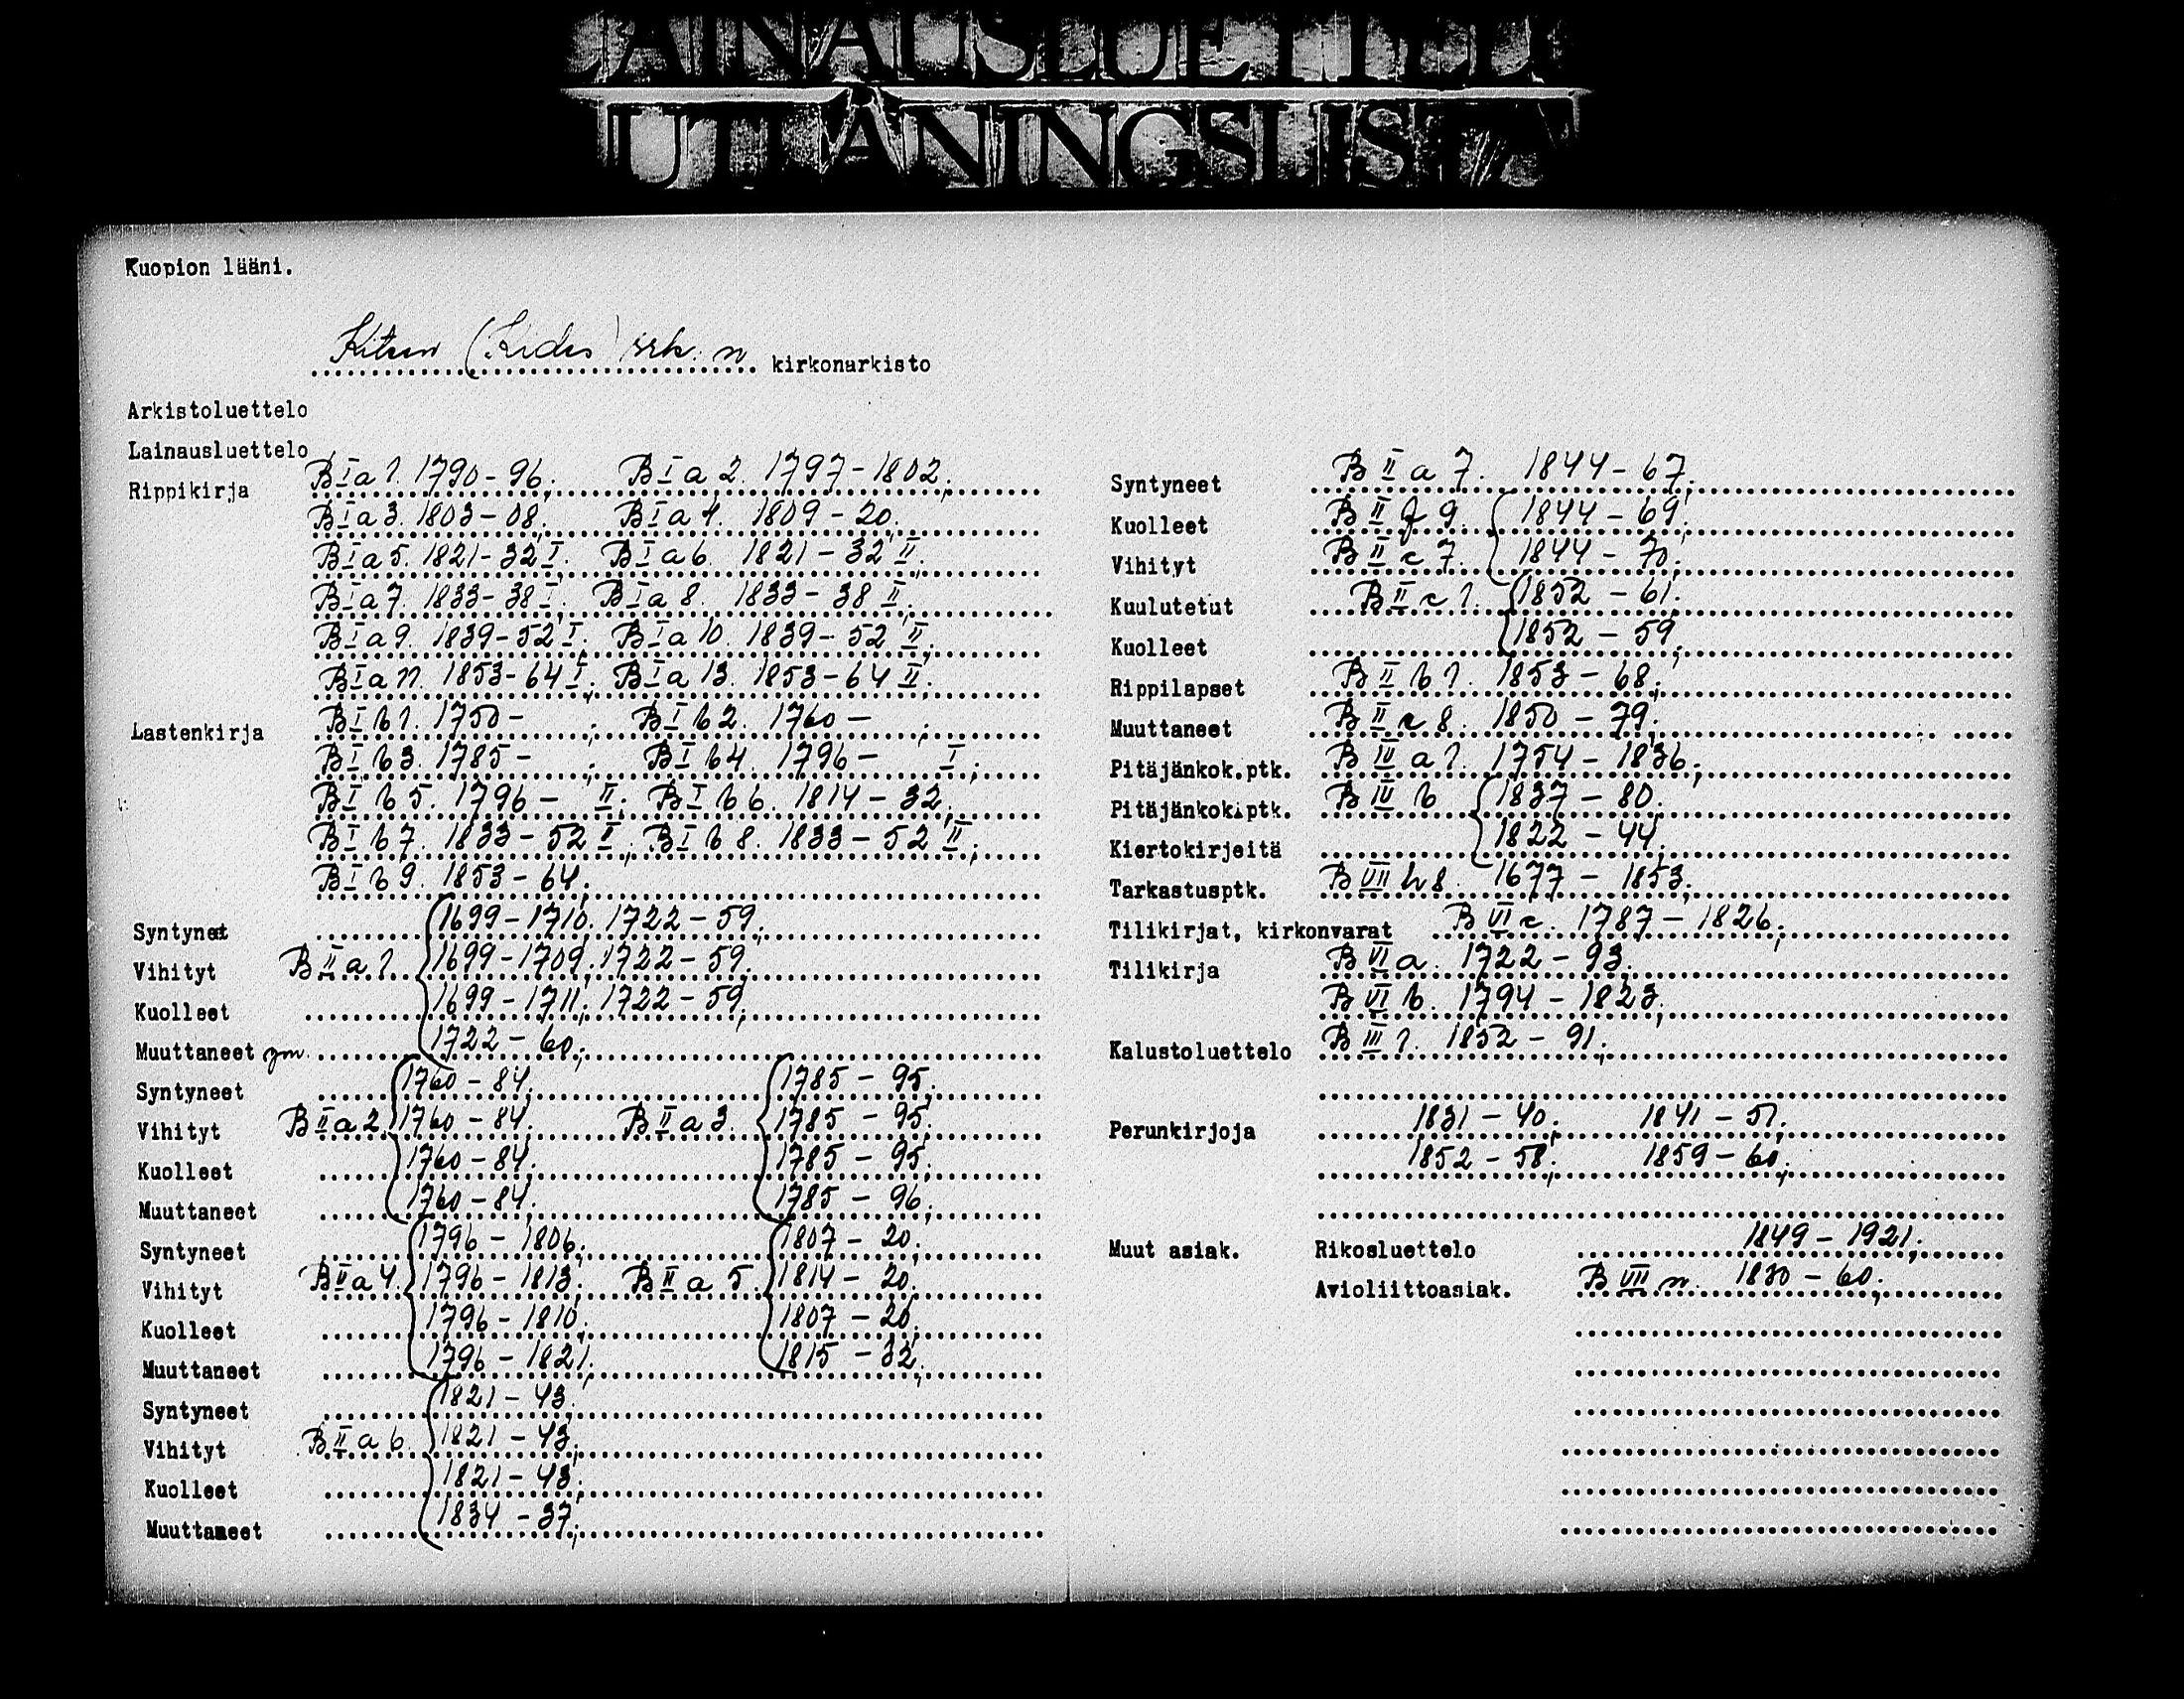 LAINAUSLUETTELO
UTLÅNINGSLISTA
Kuopion lääni.
Kiteen (Kides) srk:n kirkonarkisto
Arkistoluettelo
Lainausluettelo
Rippikirja B I a 1. 1790-96; B I a 2. 1797-1802;
B I a 3. 1803-08; B I a 4. 1809-20;
B I a 5. 1821-32 I; B I a 6. 1821-32 II;
B I a 7. 1833-38 I; B I a 8. 1833-38 II;
B I a 9. 1839-52 I; B I a 10. 1839-52 II;
B I a 11. 1853-64 I; B I a 13. 1853-64 II.
Lastenkirja B I b 1. 1750- ; B I b 2. 1760- ;
B I b 3. 1785- ; B I b 4. 1796- I;
B I b 5. 1796- II; B I b 6. 1814-32;
B I b 7. 1833-52 I; B I b 8. 1833-52 II;
B I b 9. 1853-64;
Syntynet 1699-1710; 1722-59;
Vihityt B II a 1. 1699-1709; 1722-59;
Kuolleet 1699-1711; 1722-59;
Muuttaneet ym. 1722-60;
Syntyneet 1760-84; 1785-95;
Vihityt B II a 2. 1760-84; B II a 3. 1785-95;
Kuolleet 1760-84; 1785-95;
Muuttaneet 1760-84; 1785-96;
Syntyneet 1796-1806; 1807-20;
Vihityt B II a 4. 1796-1813; B II a 5. 1814-20;
Kuolleet 1796-1810; 1807-20;
Muuttaneet 1796-1821; 1815-32;
Syntyneet 1821-43;
Vihityt B II a 6. 1821-43;
Kuolleet 1821-43;
Muuttaneet 1834-37;
Syntyneet B II a 7. 1844-67;
Kuolleet B II f 9. 1844-69;
Vihityt B II c 7. 1844-70;
Kuulutetut B II c 1. 1852-61;
Kuolleet 1852-59;
Rippilapset B II b 1. 1853-68;
Muuttaneet B II c 8. 1850-79;
Pitäjänkok.ptk. B IV a 1. 1754-1836;
Pitäjänkok.ptk. B IV b 1837-80;
Kiertokirjeitä 1822-44;
Tarkastusptk. B VII h 8. 1677-1853;
Tilikirjat, kirkonvarat B VI c. 1787-1826;
Tilikirja B VI a. 1722-93;
B VI b. 1794-1823;
Kalustoluettelo B III 1. 1852-91;
Perunkirjoja 1831-40; 1841-51;
1852-58; 1859-60;
Muut asiak. Rikosluettelo 1849-1921;
Avioliittoasiak. B VII n. 1830-60;